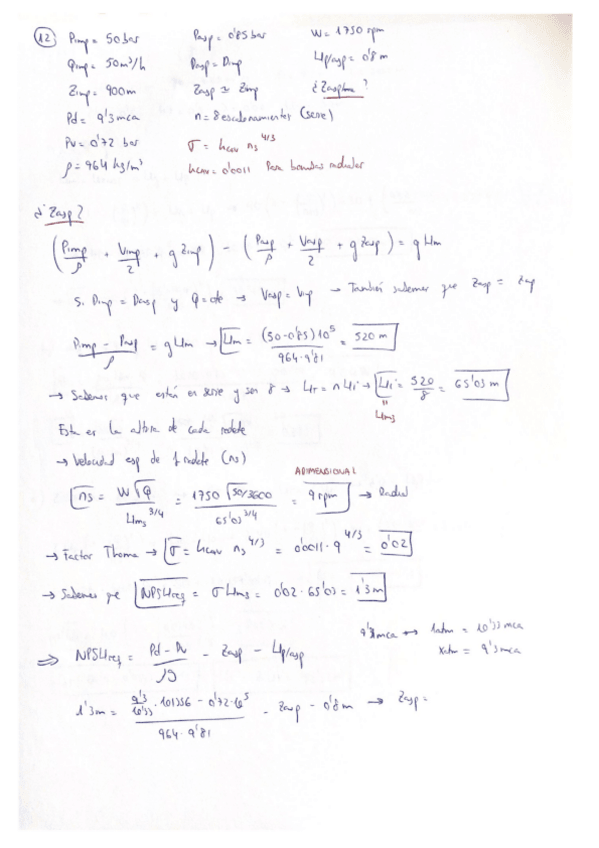 12) Pimp = 50 bar   Pasp = 0'85 bar   W = 1750 rpm
Qimp = 50 m³/h   Dasp = Dimp   Hp/asp = 0'8 m
Zimp = 900m   Zasp ≈ Zimp   ¿Zaspmax?
Pd = 9'3 mca   n = 8 escalonamientos (serie)
Pv = 0'72 bar   σ = hcav ns^4/3
ρ = 964 kg/m³   hcav = 0'0011 Para bombas radiales
¿Zasp?
(Pimp/ρ + Vimp/2 + g Zimp) - (Pasp/ρ + Vasp/2 + g Zasp) = g Hm
Si Dimp = Dasp y Q = cte → Vasp = Vimp → También sabemos que Zasp = Zimp
Pimp - Pasp/ρ = g Hm → Hm = (50-0'85)10⁵/964·9'81 = 520 m
→ Sabemos que están en serie y son 8 → HT = n Hi → Hi = 520/8 = 65'03 m
Hms
Esta es la altura de cada rodete
→ Velocidad esp de 1 rodete (ns)
ADIMENSIONAL
ns = W√Q/Hms^3/4 = 1750 √50/3600/65'03^3/4 = 9 rpm → Radial
→ Factor Thoma → σ = hcav ns^4/3 = 0'0011·9^4/3 = 0'02
→ Sabemos que NPSHreq = σ Hms = 0'02·65'03 = 1'3m
9'3mca ↔ 1atm = 10'33 mca
xatm = 9'3mca
⇒ NPSHreq = Pd - Pv/ρg - Zasp - Hp/asp
1'3m = 9'3/10'33 · 101336 - 0'72·10⁵/964·9'81 - Zasp - 0'8m → Zasp =